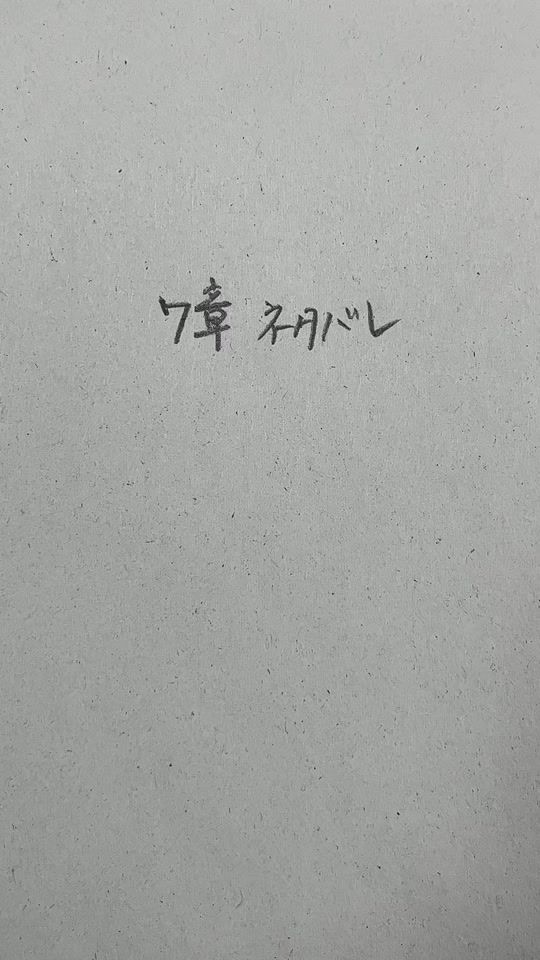 7章 ネタバレ